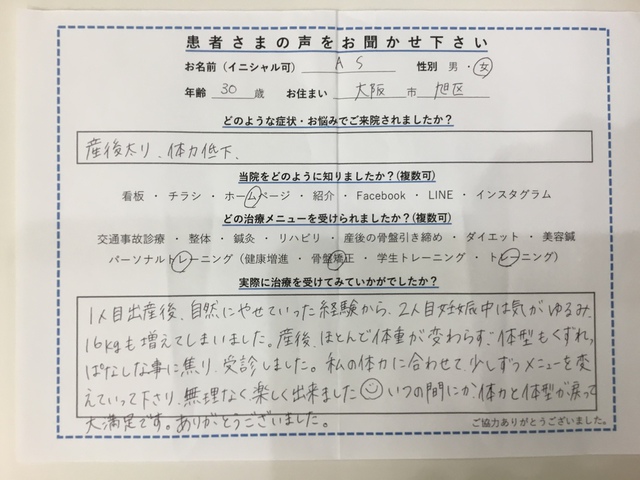 患者さまの声をお聞かせ下さい
お名前（イニシャル可） A S 性別 男・女
年齢 30 歳 お住まい 大阪 市 旭区
どのような症状・お悩みでご来院されましたか？
産後太り、体力低下、
当院をどのように知りましたか？(複数可)
看板 ・ チラシ ・ ホームページ ・ 紹介 ・ Facebook ・ LINE ・ インスタグラム
どの治療メニューを受けられましたか？(複数可)
交通事故診療 ・ 整体 ・ 鍼灸 ・ リハビリ ・ 産後の骨盤引き締め ・ ダイエット ・ 美容鍼
パーソナルトレーニング（健康増進 ・ 骨盤矯正 ・ 学生トレーニング ・ トレーニング）
実際に治療を受けてみていかがでしたか？
1人目出産後、自然にやせていった経験から、2人目妊娠中は気がゆるみ、
16kgも増えてしまいました。産後、ほとんど体重が変わらず、体型もくずれっ
ぱなしな事に焦り、受診しました。私の体力に合わせて、少しずつメニューを変
えていって下さり、無理なく楽しく出来ました いつの間にか、体力と体型が戻って
大満足です。ありがとうございました。
ご協力ありがとうございました。